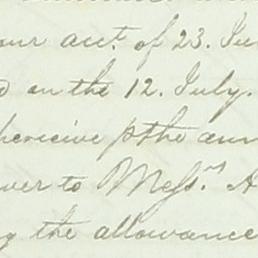 our acct. of 23. Ju
on the 12. July.
pthe
ver to Messrs. A
the allowance